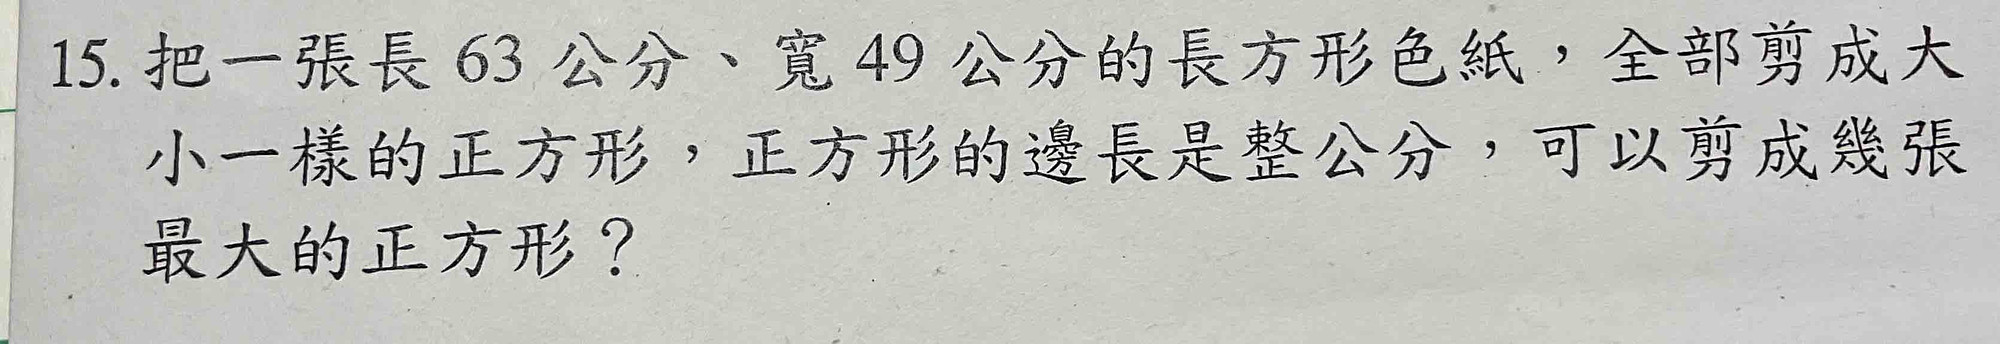 15. 把一張長 63 公分、寬 49 公分的長方形色紙，全部剪成大
小一樣的正方形，正方形的邊長是整公分，可以剪成幾張
最大的正方形？